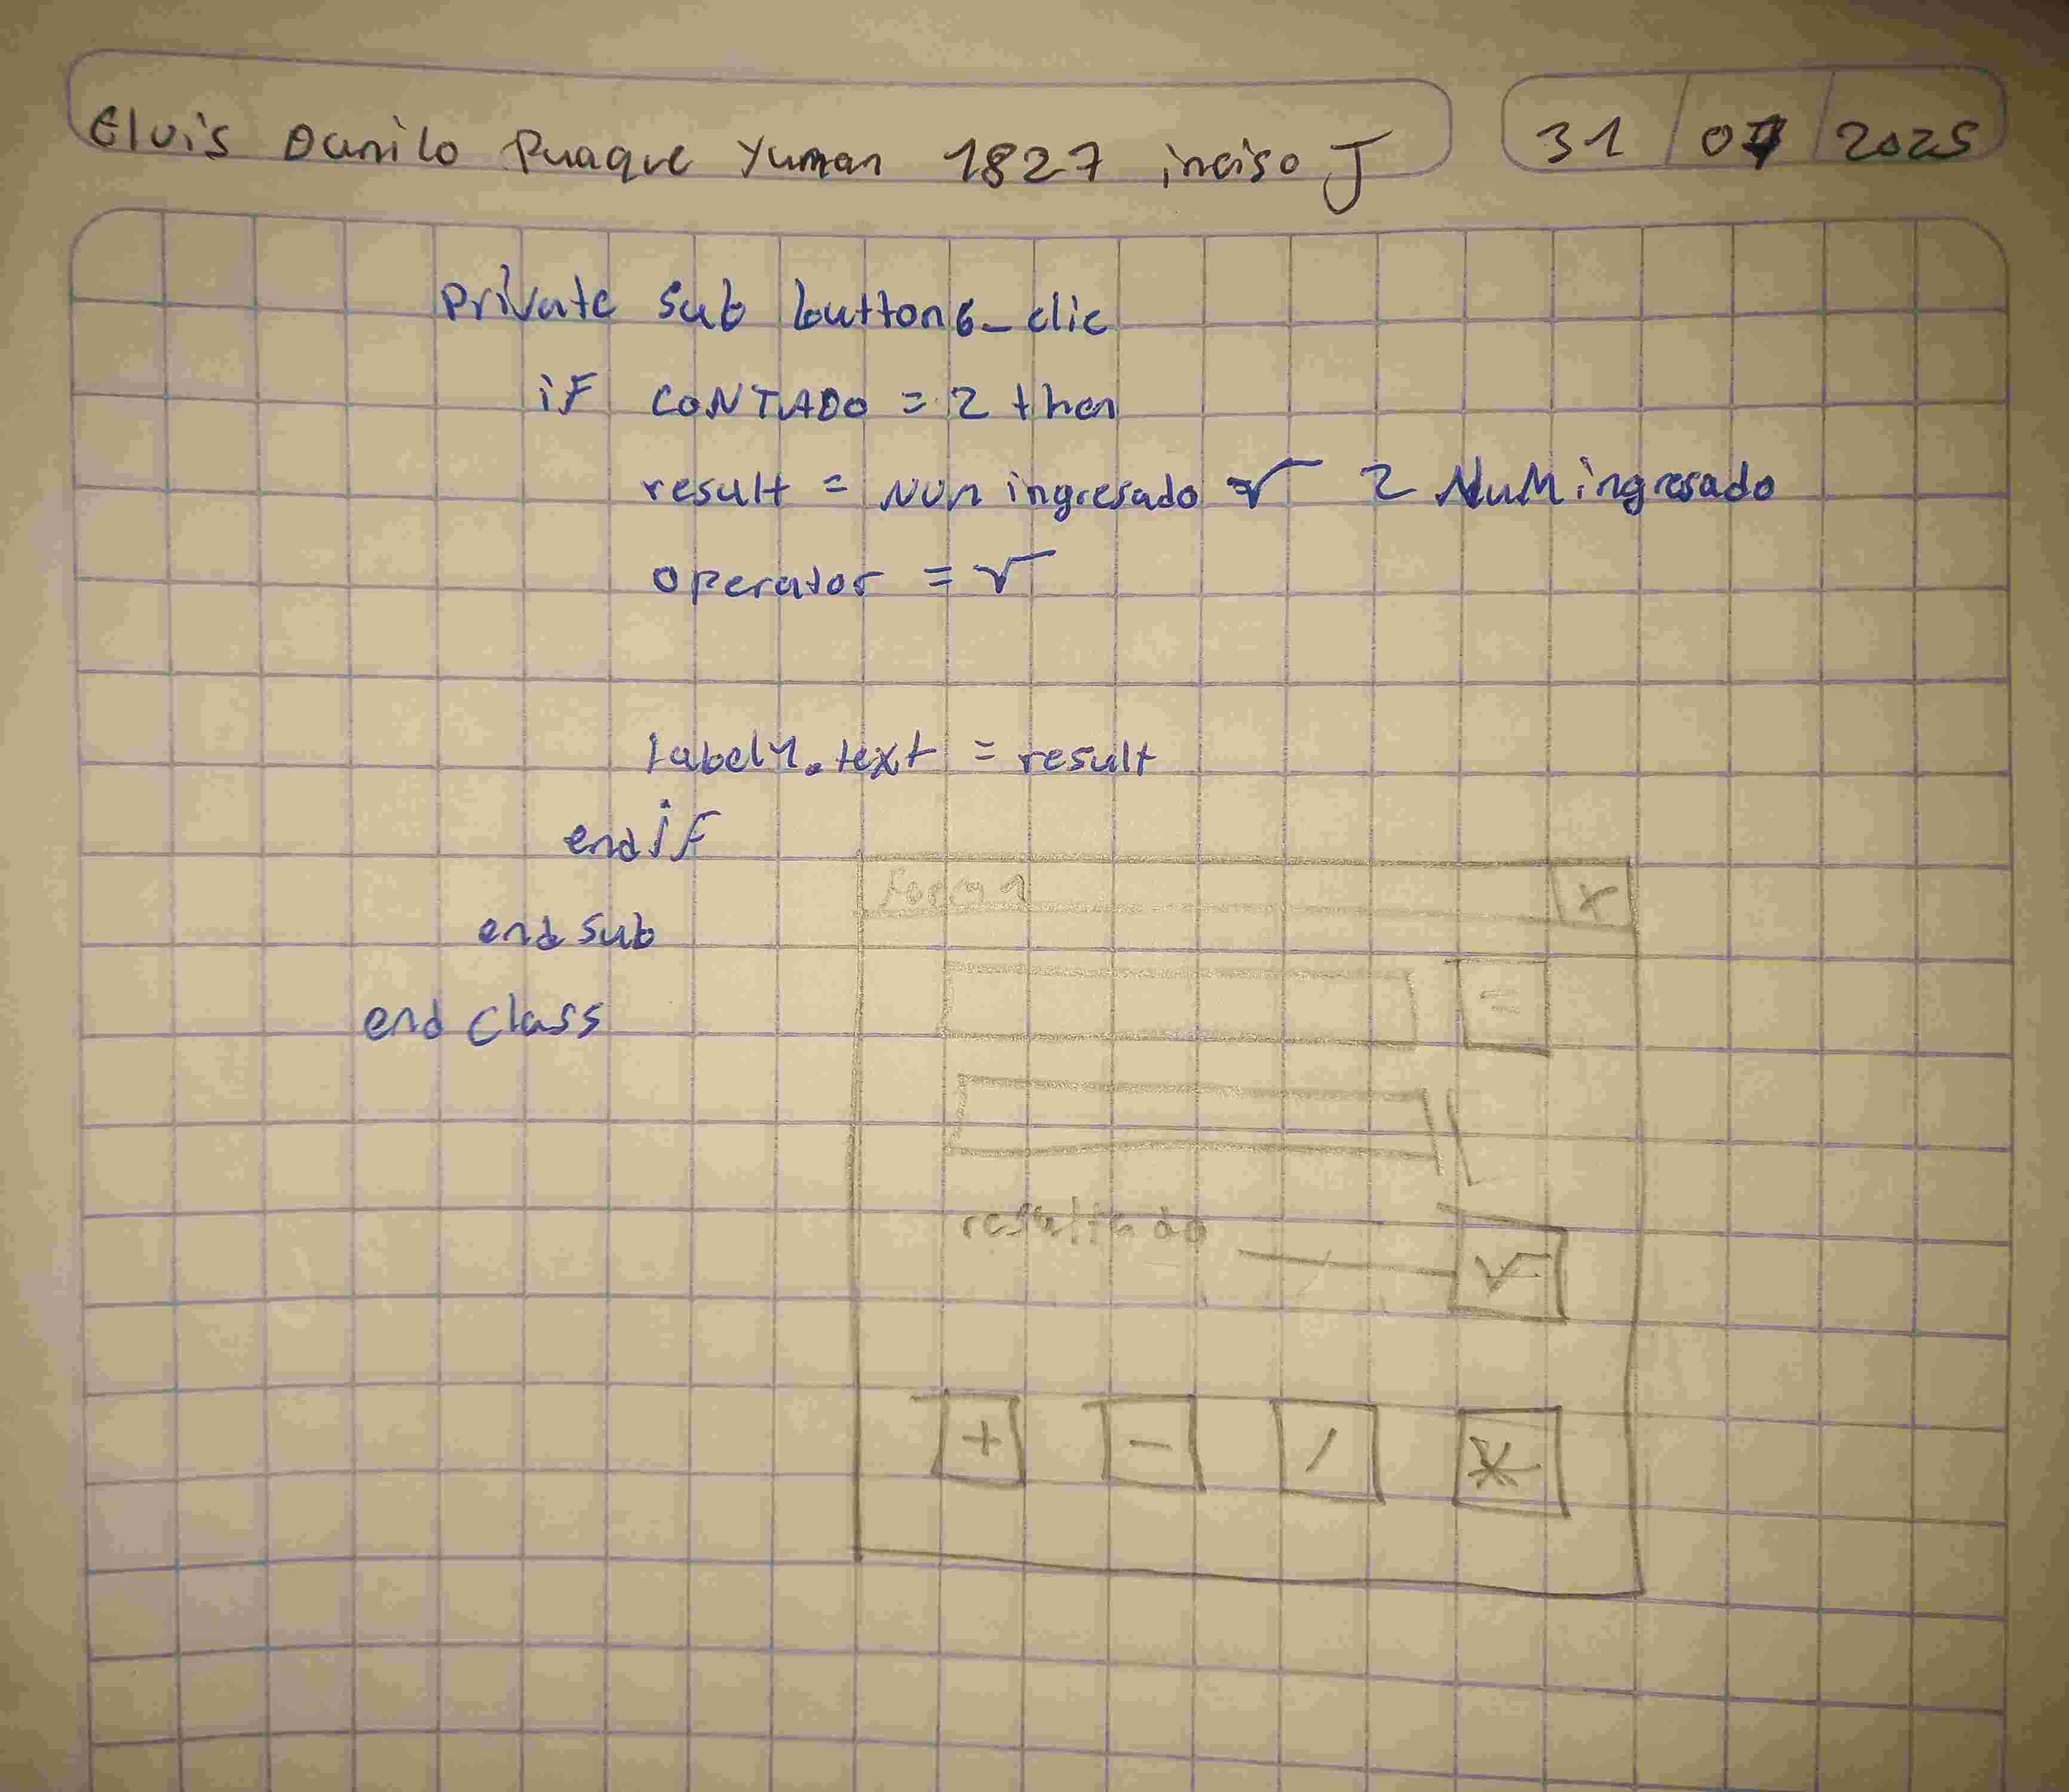 Elvis Danilo Puaque Yuman 1827 inciso J
31 / 07 / 2025
private sub button6_clic
if CONTADO = 2 then
result = Nun ingresado √ 2 NuM ingresado
operator = √
label1.text = result
end if
end sub
end class
Form 1
x
=
resultado
√
+ - / *